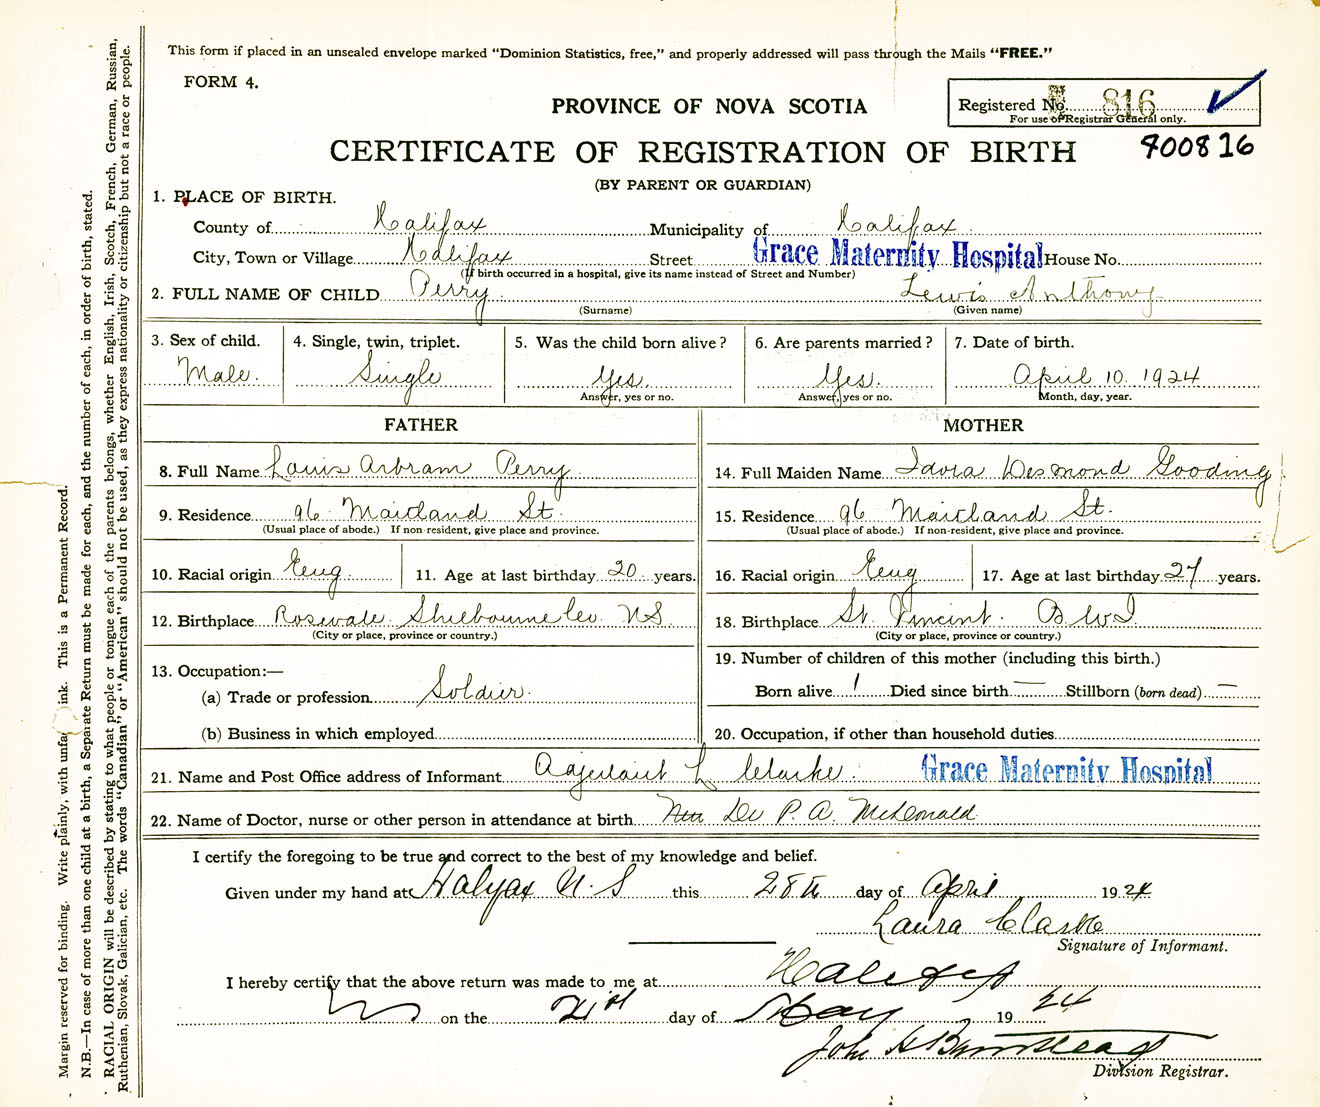 This form if placed in an unsealed envelope marked "Dominion Statistics, free," and properly addressed will pass through the Mails "FREE."
FORM 4.
PROVINCE OF NOVA SCOTIA
Registered No. 816
For use of Registrar General only.
CERTIFICATE OF REGISTRATION OF BIRTH
400816
(BY PARENT OR GUARDIAN)
1. PLACE OF BIRTH.
County of Halifax Municipality of Halifax
City, Town or Village Halifax Street Grace Maternity Hospital House No.
(If birth occurred in a hospital, give its name instead of Street and Number)
2. FULL NAME OF CHILD Perry Lewis Anthony
(Surname) (Given name)
3. Sex of child. 4. Single, twin, triplet. 5. Was the child born alive? 6. Are parents married? 7. Date of birth.
Male. Single Yes. Yes. April 10. 1924
Answer, yes or no. Answer, yes or no. Month, day, year.
FATHER MOTHER
8. Full Name Louis Arbram Perry 14. Full Maiden Name Idora Desmond Gooding
9. Residence 96 Maitland St. 15. Residence 96 Maitland St.
(Usual place of abode.) If non-resident, give place and province. (Usual place of abode.) If non-resident, give place and province.
10. Racial origin Eng 11. Age at last birthday 20 years. 16. Racial origin Eng 17. Age at last birthday 27 years.
12. Birthplace Shelbourne Co. N.S. 18. Birthplace St. Vincent. B.W.I
(City or place, province or country.) (City or place, province or country.)
19. Number of children of this mother (including this birth.)
13. Occupation:—
(a) Trade or profession Soldier. Born alive 1 Died since birth — Stillborn (born dead) —
(b) Business in which employed 20. Occupation, if other than household duties
21. Name and Post Office address of Informant Adjutant L Clarke. Grace Maternity Hospital
22. Name of Doctor, nurse or other person in attendance at birth Dr P. A. McDonald
I certify the foregoing to be true and correct to the best of my knowledge and belief.
Given under my hand at Halifax N. S this 28th day of April 1924
Laura Clarke
Signature of Informant.
I hereby certify that the above return was made to me at Halifax
on the 21st day of May 1924
John H
Division Registrar.
Margin reserved for binding. Write plainly, with unfa ink. This is a Permanent Record.
N.B.—In case of more than one child at a birth, a Separate Return must be made for each, and the number of each, in order of birth, stated.
RACIAL ORIGIN will be described by stating to what people or tongue each of the parents belongs, whether English, Irish, Scotch, French, German, Russian,
Ruthenian, Slovak, Galician, etc. The words "Canadian" or "American" should not be used, as they express nationality or citizenship but not a race or people.